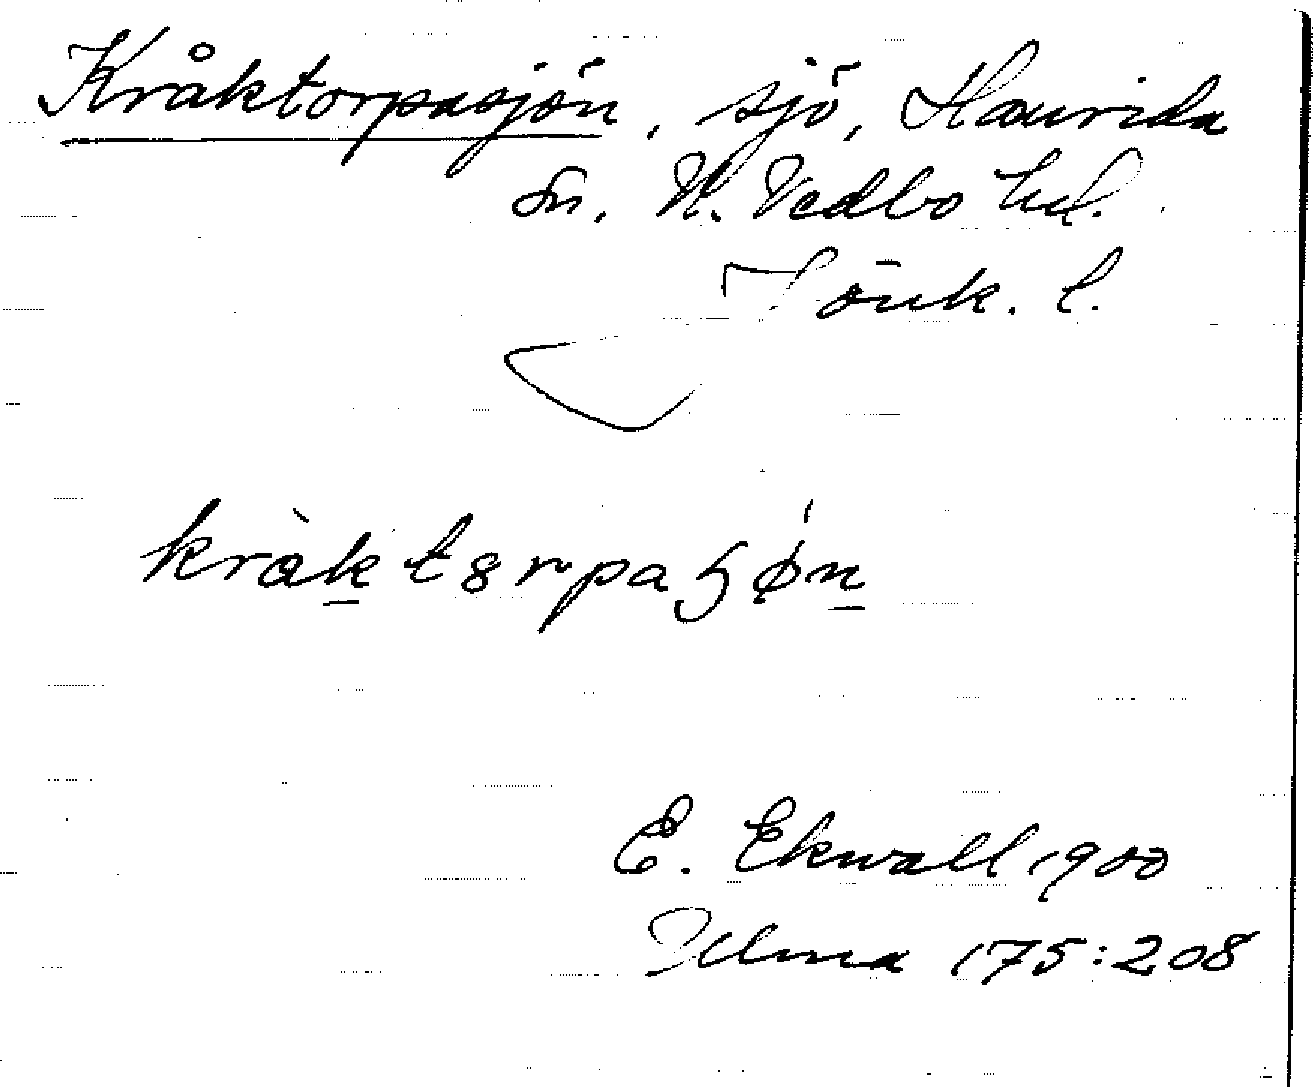 Kråktorpasjön, sjö, Haurida
sn. N. Vedbo hd.
Jönk. l.
kràktɘrpaɧǿn
E. Ekwall 1900
Ulma 175:208